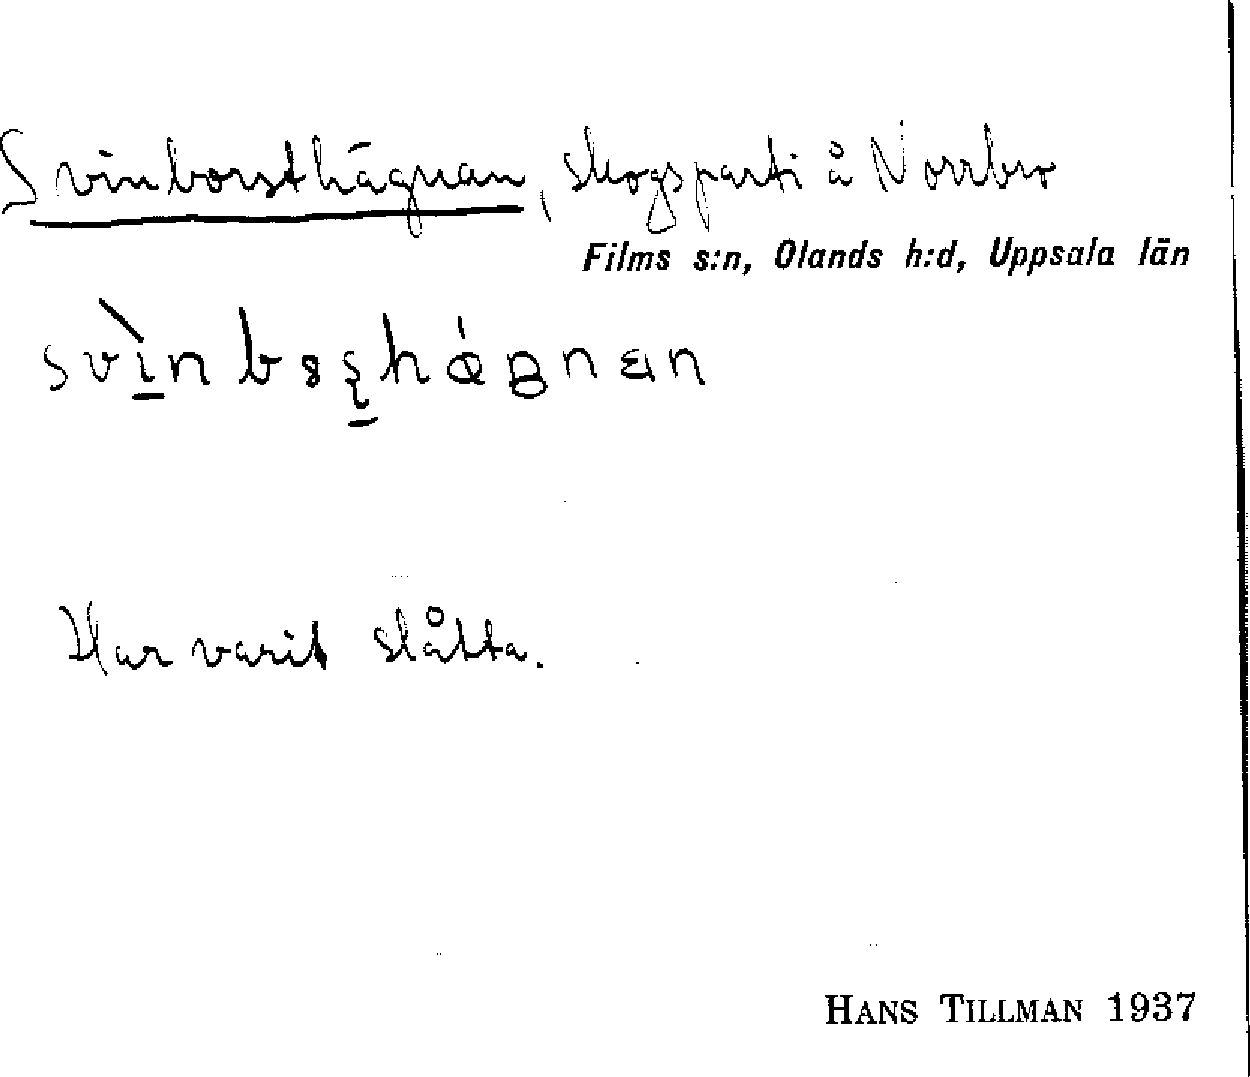 Svinborsthägnan, skogsparti å Norrbro
Films s:n, Olands h:d, Uppsala län
Har varit slåtta.
HANS TILLMAN 1937